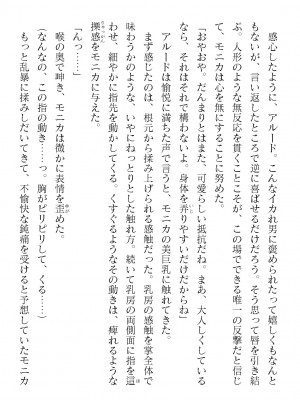 感心したように、アルード。こんなイカれ男に褒められたって嬉しくもなんと
もないが、言い返したところで逆に喜ばせるだけだろう。そう思って唇を引き結
ぶ。人形のような無反応を貫くことこそが、この場でできる唯一の反撃だと信じ
て、モニカは心を無にすることに努めた。
「おやおや。だんまりとはまた、可愛らしい抵抗だね。まあ、大人しくしている
なら、それはそれで構わないよ。身体を弄りやすいだけだからね」
アルードは愉悦に満ちた声で言うと、モニカの美巨乳に触れてきた。
まず感じたのは、根元から揉み上げられる感触だった。乳房の感触を掌全体で
味わうかのような、いやにねっとりとした触れ方。続いて乳房の両側面に指を這
わせ、細やかに指先を動かしてくる。くすぐるようなその動きは、痺れるような
掻痒感をモニカに与えた。
「んっ……」
喉の奥で呻き、モニカは微かに表情を歪めた。
（なんなの、この指の動き……っ。胸がピリピリして、くる……）
もっと乱暴に揉みしだいてきて、不愉快な鈍痛を受けると予想していたモニカ